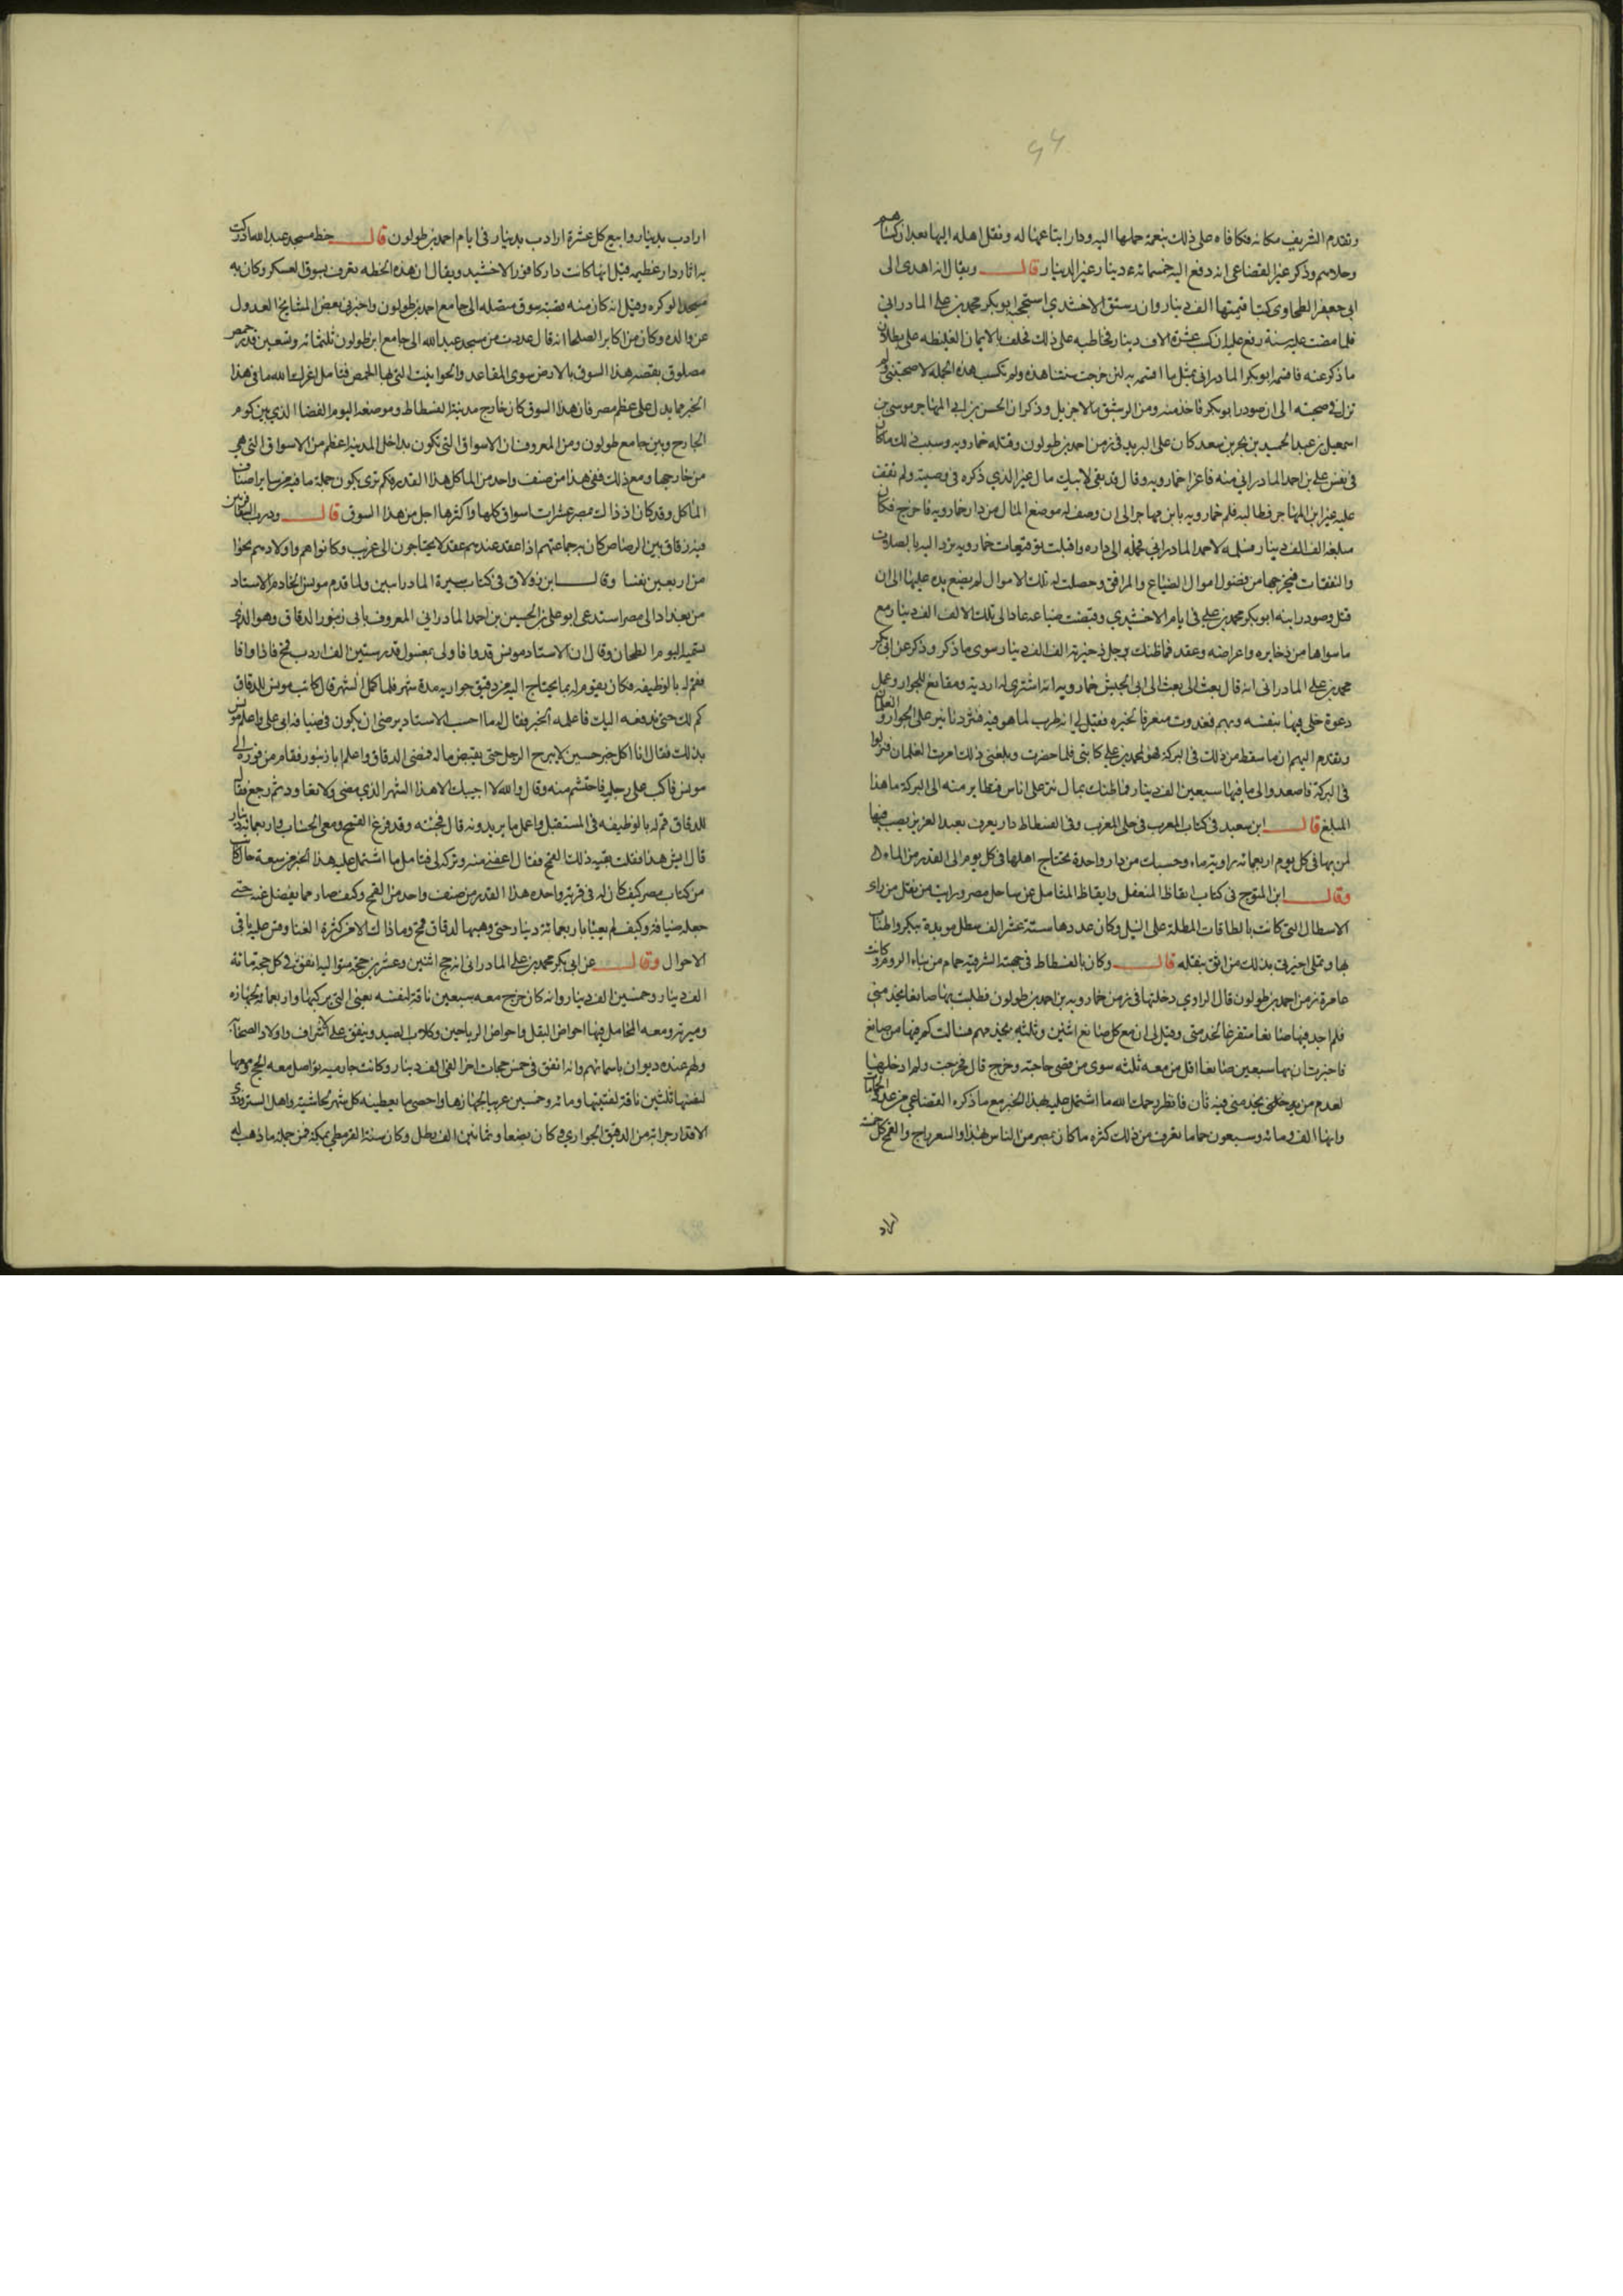 وتقدم الشريف مكانه فكافاه على ذلك بنعمة حملها اليه ودار ابتاعها له ونقل اهله اليها بعد ان كساهم
وحلاهم وذكر غير القضاعي انه دفع اليه خمسمائة دينار غير الدينار قال ويقال انه اهدى الى
ابي جعفر الطحاوي كتبا قيمتها الف دينار وان رستق الاخشيدي استحجبه ابو بكر محمد بن علي المادراني
فلما مضت عليه سنة رفع عليه انه كسب عشرة الاف دينار فخاطبه على ذلك فحلف بالايمان الغليظة على بطلان
ما ذكر عنه فاقسم ابو بكر المادراني بمثل ما اقسم به لئن خرجت سنتنا هذه ولم تكسب هذه الجملة لا صحبتني ولم
تزل في صحبته الى ان صودر ابو بكر فاخذ منه ومن الرستق مالا جزيل وذكر ان الحسن بن ابي المهاجر موسى بن
اسمعيل بن عبد الحميد بن بحر بن سعد كان على البريد في زمن احمد بن طولون وقتله خمارويه وسبب ذلك ما كان
في نفس علي بن احمد المادراني منه فاغرا خمارويه وقال قد بقي لابيك مال غير الذي ذكره في وصيته ولم تقف
عليه غير ابن المهاجر فطالبه فلم خمارويه بابن مهاجر الى ان وصف له موضع المال من دار خمارويه فاخرج فكان
مبلغه الف الف دينار فسلمه لاحمد المادراني فحمله الى داره واقبلت توقيعات خمارويه يزد اليه بالصلات
والنفقات فيخرجها من فضول اموال الضياع والمرافق وحصلت له تلك الاموال لم يضع يده عليها الى ان
قتل وصودر ابنه ابو بكر محمد بن علي في ايام الاخشيدي وقبضت ضياعه عاد الى تلك الالف الف دينار مع
ما سواها من ذخايره واعراضه وعقد فما ظنك برجل ذخيرته الف الف دينار سوى ما ذكر وذكر عن ابي بكر
محمد بن علي المادراني انه قال بعث الى بعث الى ابي الجيش خمارويه انه اشترى له اردية ومقانع للجوار وعمل
دعوة خلى فيها بنفسه وبهم فغدوت متعرفا لخبره فقيل لي انه طرب لما هو فيه فنثر دنانير على الجوار والغلمان
وتقدم اليهم ان ما سقط من ذلك في البركة فهو لمحمد بن علي كاتبي فلما حضرت وبلغني ذلك امرت الغلمان فنزلوا
في البركة فاصعدوا الي ما فيها سبعين الف دينار فما ظنك بمال نثر على اناس فتطاير منه الى البركة ما هذا
المبلغ قال ابن سعيد في كتاب المغرب في حلى المغرب وفي الفسطاط دار يعرف بعبد العزيز يصب فيها
لمن بها في كل يوم اربعمائة راوية ماء وحسبك من دار واحدة يحتاج اهلها في كل يوم الى القدر من الماء
وقال ابن المتوج في كتاب ايقاظ المتغفل وايقاظ المتامل عن ساحل مصر ورايت من نقل من راى
الاسطال التي كانت بالطاقات المطلة على النيل وكان عددها ستة عشر الف سطل مويدة ببكر واطناب
بها وتملى اخبرني بذلك من اثق بنقله قال وكان بالفسطاط في جهته الشرقية حمام من بناء الروم وكانت
عامرة زمن احمد بن طولون قال الراوي دخلتها في زمن خمارويه بن احمد بن طولون فطلبت بها صانعا يخدمني
فلم اجد فيها صانعا متفرغا لخدمتي وقيل لي ان مع كل صانع اثنين وثلثه يخدمهم فسالت كم فيها من صانع
فاخبرت ان بها سبعين صانعا اقل من معه ثلثه سوى من قضى حاجته وخرج قال فخرجت ولم ادخلها
لعدم من يخدمني بها فيه ثان فانظر رحمك الله ما اشتمل عليه هذا الخبر مع ما ذكره القضاعي من عدد الحمامات
وانها الف ومائه وسبعون حماما تعرف من ذلك كثرة ما كان بمصر من الناس هذا والسعر راج والقمح كل خمسه
اراد
ارادب بدينار وابيع كل عشرة ارادب بدينار في ايام احمد بن طولون قال خط مسجد عبد الله ادركت
به اثار دار عظيمه قيل انها كانت دار كافور الاخشيد ويقال ان هذه الخطه تعرف بسوق العسكر وكان به
مسجد الوكره وقيل انه كان منه قصبة سوق متصله الى جامع احمد بن طولون واخبرني بعض المشايخ العدول
عن والده وكان من اكابر الصلحا انه قال عددت من مسجد عبد الله الى جامع ابن طولون ثلثمائه وتسعين قدر حمص
مصلوق بقصبة هذا السوق بالارض سوى المقاعد والحوانيت التي بها الحمص فتامل اعزك الله ما في هذا
الخبر مما يدل على عظم مصر فان هذا السوق كان خارج مدينة الفسطاط وموضعه اليوم الفضا الذي بين كوم
الجارح وبين جامع طولون ومن المعروف ان الاسواق التي تكون بداخل المدينه اعظم من الاسواق التي هي
من خارجها ومع ذلك ففي هذا من صنف واحد من الماكل هذا القدر فكم ترى يكون جملة ما فيه من ساير اصناف
الماكل وقد كان اذ ذاك بمصر عشرات اسواق كلها واكثرها اجل من هذا السوق قال ودرب السفافيريين
فيه زقاق بني الرصاص كان به جماعتهم اذا عقد عندهم عقد لا يحتاجون الى غريب وكانوا هم واولادهم نحوا
من اربعين نفسا وقال ابن زولاق في كتاب سيرة المادرانيين ولما قدم مونس الخادم الاستاد
من بغداد الى مصر استدعى ابو علي بن الحسين بن احمد المادراني المعروف بابي زنبور الدقاق وهو الذي
نسميه اليوم الطحان وقال ان الاستاد مونس قد وافا ولي بمشتول قدر ستين الف اردب قمح فاذا وافا
فقم له بالوظيفه فكان يقوم له بما يحتاج اليه من دقيق حواريه مدة شهر فلما كمل الشهر قال كاتب مونس للدقاق
كم لك حتى ندفعه اليك فاعلمه الخبر فقال له ما احسب الاستاد يرضى ان يكون في ضيافة ابي علي واعلم مونس
بذلك فقال انا اكل خبز حسين لا يبرح الرجل حتى يقبض ماله فمضى الدقاق واعلم ابا زنبور فقام من فوره الى
مونس فاكب على رجليه فاحتشم منه وقال والله لا اجيبك الا هذا الشهر الذي مضى ولا تعاود ثم رجع فقال
للدقاق قم له بالوظيفه في المستقبل واعمل ما يريدونه قال فجئته وقد فرغ القمح ومعي الحساب واربعمائة دينار
قال ايش هذا فقلت بقيه ذلك القمح فقال اعفني منه وتركه لي فتامل ما اشتمل عليه هذا الخبر من سعة حال كاتب
من كتاب مصر كيف كان له في قرية واحده هذا القدر من صنف واحد من القمح وكيف صار مما يفضل عنه حتى
جعله ضيافة وكيف لم يعبا باربعمائة دينار حتى وهبها لدقاق قمح وما ذاك الا من كثرة الغنا وقس عليه باقي
الاحوال وقال عن ابي بكر محمد بن علي المادراني انه حج اثنين وعشرين حجة متواليه انفق في كل حجة مائة
الف دينار وخمسين الف دينار وانه كان خرج معه سبعين ناقة لنفسه يعني التي يركبها واربعمائة لجهازه
وميرته ومعه المحامل فيها احواض البقل واحواض الرياحين وكلاب الصيد وينفق على الاشراف واولاد الصحابة
ولهم عنده ديوان باسمائهم وانه انفق في خمس حجات اخر الفي الف دينار وكانت جاريته تواصل معه الحج ومعها
لنفسها ثلثين ناقة لقبتها ومائه وخمسين عربيا لجهازها واحصى ما يعطيه كل شهر لحاشيته واهل الستر وذوي
الاقدار جراية من الدقيق الحواري فكان بضعا وثمانين الف رطل وكان سنة القرمطي بمكة فمن جملة ما ذهب له